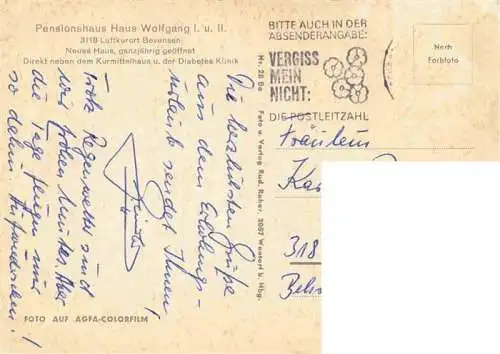 Pensionshaus Haus Wolfgang I. u. II.
3118 Luftkurort Bevensen
Neues Haus, ganzjährig geöffnet
Direkt neben dem Kurmittelhaus u. der Diabetes Klinik
BITTE AUCH IN DER
ABSENDERANGABE:
VERGISS
MEIN
NICHT:
DIE POSTLEITZAHL
Nach
Farbfoto
Die herzlichsten Grüße
aus dem Erholungs-
urlaub sendet Ihnen
Trotz Regenwetter sind
wir frohen Mutes. Aber
die Tage fliegen nur
so dahin.
Nr. 28 Be Foto u. Verlag Rud. Reher, 2057 Wentorf b. Hbg.
Fräulein
318
FOTO AUF AGFA-COLORFILM